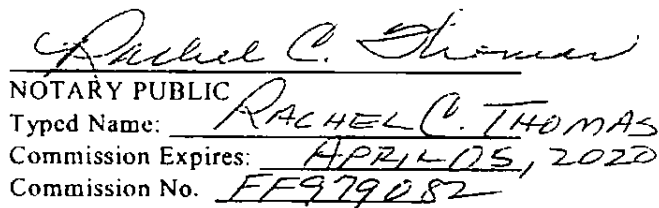 Rachel C. Thomas
NOTARY PUBLIC
Typed Name: RACHEL C. THOMAS
Commission Expires: APRIL 05, 2020
Commission No. FF979082